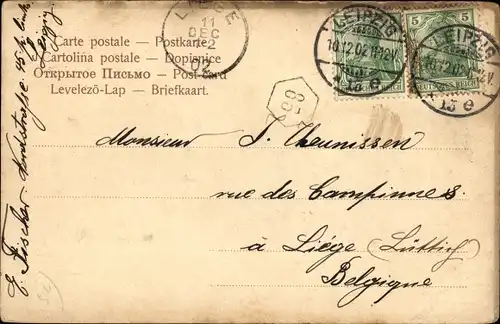 Carte postale — Postkarte
Cartolina postale — Dopisnice
Открытое Письмо — Post-card
Levelező-Lap — Briefkaart.
LIÈGE
11
DEC
12
02
LEIPZIG
10.12.02
13 e
LEIPZIG
10.12.02
13 e
5 5
Monsieur J. Theunissen
rue des Campinnes.
à Liége (Lüttich)
Belgique
E. Fischer
Leipzig